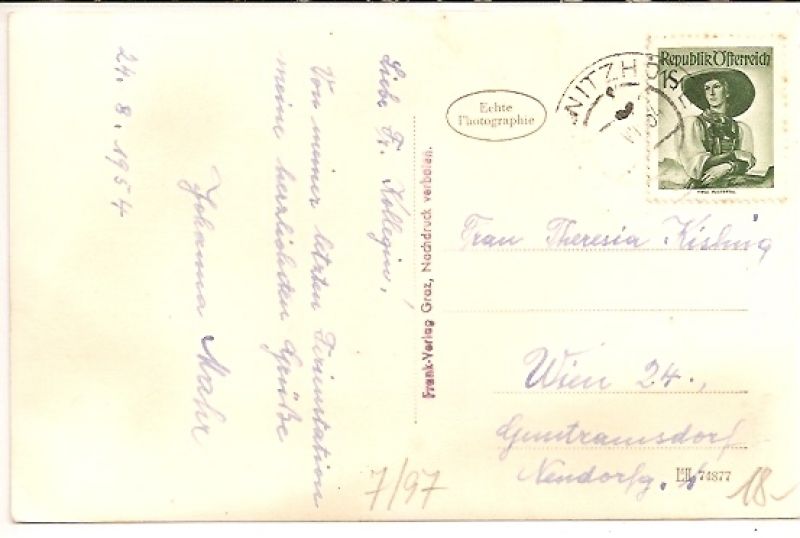 Liebe Fr. Kollegin!
Von meiner letzten Ferienstation
meine herzlichsten Grüße
Johanna Mahr
24.8.1954
Frank-Verlag Graz, Nachdruck verboten.
Echte
Photographie
NITZHÖ
Republik Österreich
1S
Frau Theresia Kisling
Wien 24.,
Guntramsdorf
Neudorfg.
74877
7/97
18-